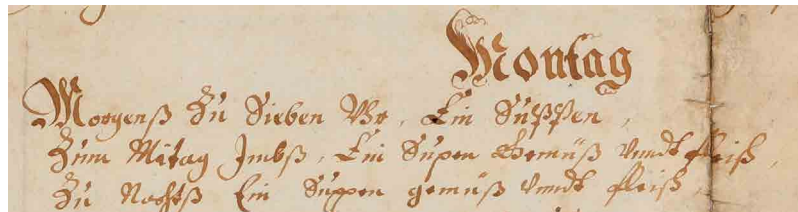 Montag
Morgenß Zu Sieben Vhr, Ein Suppen,
Zum Mitag Imbß, Ein Supen Gemüß vnndt fleiß,
Zu Nachtß Ein Suppen gemüß vndt fleiß,